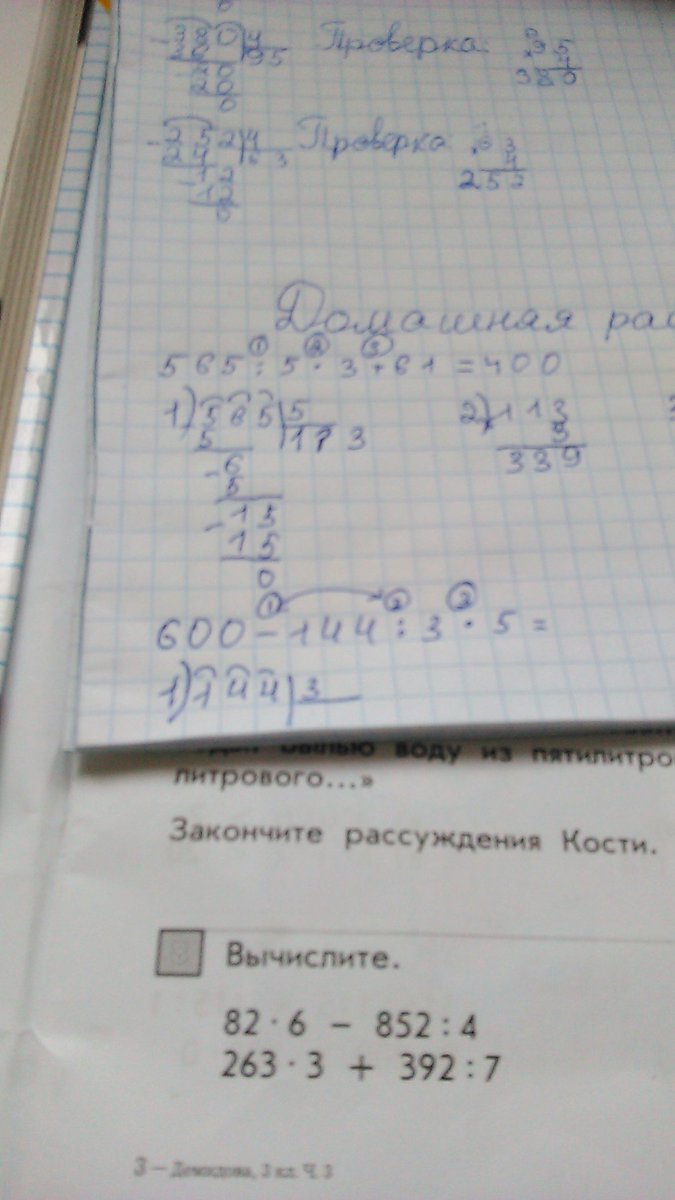 380|4 Проверка: 95
95 4
380
252|4 Проверка 63
24 6 3 4
12 252
12
0
Домашная
① ② ③
565 : 5 · 3 + 61 = 400
1) 565|5 2) 113
5 113 3
-6 339
5
-15
15
0
① ② ③
600 - 144 : 3 · 5 =
1) 144|3
воду из
литрового...»
Закончите рассуждения Кости.
Вычислите.
82 · 6 − 852 : 4
263 · 3 + 392 : 7
3 – Демидова, 3 кл. Ч. 3